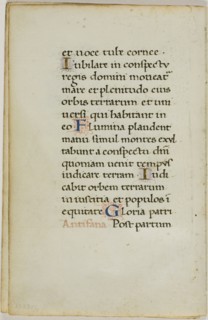 et uoce tube cornee.
Iubilate in conspectu
regis domini moueat
mare et plenitudo eius
orbis terrarum et uni
uersi qui habitant in
eo Flumina plaudent
manu simul montes exul
tabunt a conspectu dñi
quoniam uenit tempus
iudicare terram Iudi
cabit orbem terrarum
in iusticia et populos ĩ
equitate Gloria patri
Antifana Post partum